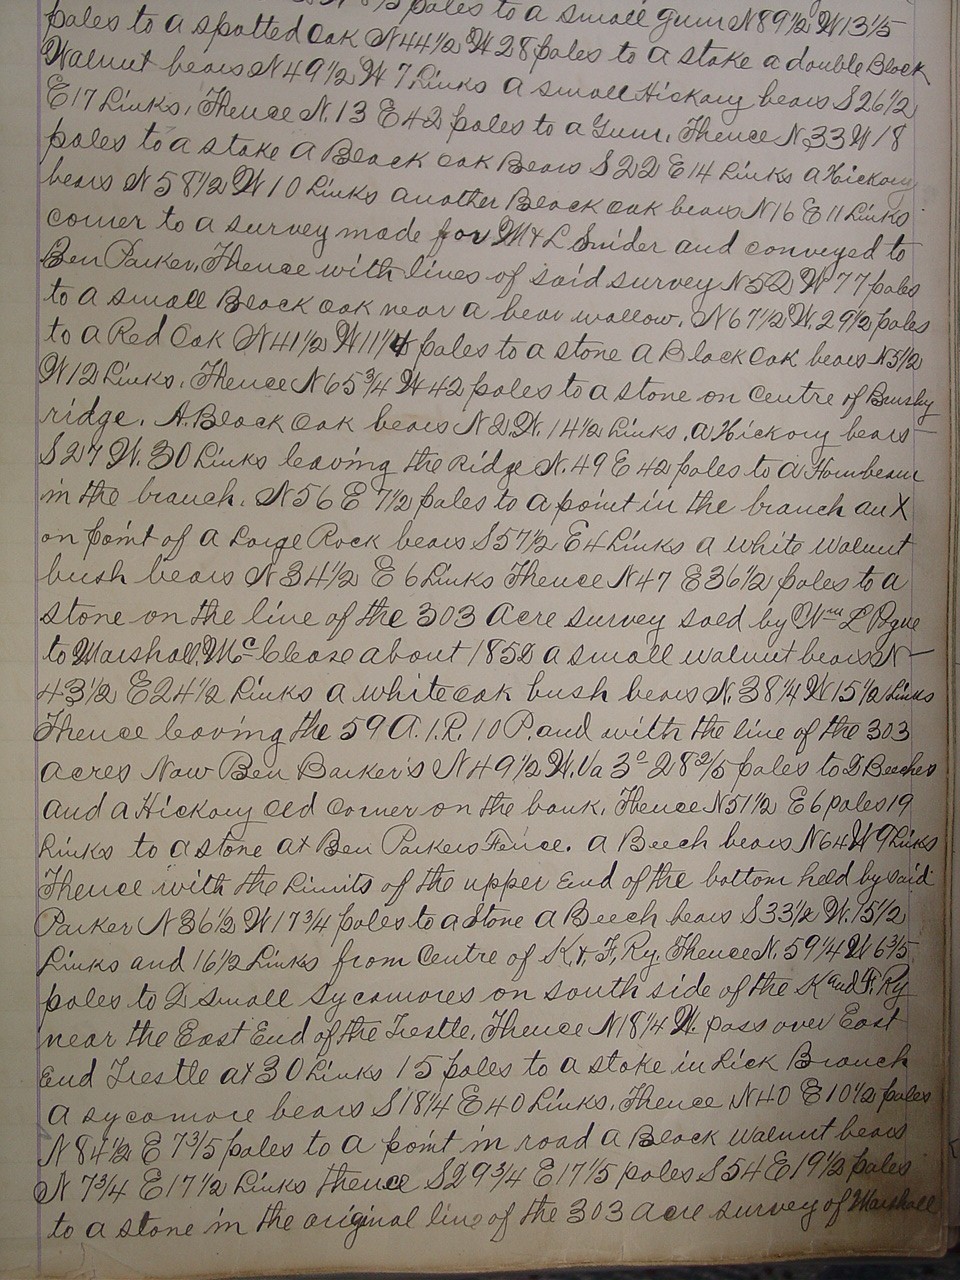 poles to a small gum N 89 1/2 W 13 1/5
poles to a spotted oak N 44 1/2 W 28 poles to a stake a double Black
Walnut bears N 49 1/2 W 7 Links a small Hickory bears S 26 1/2
E 17 Links, Thence N. 13 E 42 poles to a Gum, Thence N 33 W 18
poles to a stake a Black oak Bears S 22 E 14 Links a Hickory
bears N 58 1/2 W 10 Links another Black oak bears N 16 E 11 Links
corner to a survey made for M & L Snider and conveyed to
Ben Parker, Thence with lines of said survey N 52 W 77 poles
to a small Black oak near a bear wallow. N 67 1/2 W. 29 1/2 poles
to a Red Oak N 41 1/2 W 11 1/4 poles to a stone a Black Oak bears N 5 1/2
W 12 Links, Thence N 65 3/4 W 42 poles to a stone on centre of Brushy
ridge. A. Black oak bears N 2 W. 14 1/2 Links, a Hickory bears
S 27 W. 30 Links leaving the Ridge N. 49 E 42 poles to a Hornbeam
in the branch. N 56 E 7 1/2 poles to a point in the branch an X
on point of a Large Rock bears S 57 1/2 E 4 Links a white walnut
bush bears N 34 1/2 E 6 Links Thence N 47 E 36 1/2 poles to a
stone on the line of the 303 Acre survey sold by Wm L Pogue
to Marshall Mc Clease about 1852 a small walnut bears N
43 1/2 E 24 1/2 Links a white oak bush bears N. 38 1/4 W 15 1/2 Links
Thence leaving the 59 A. 1. R. 10 P. and with the line of the 303
acres Now Ben Barker's N 49 1/2 W. Va 3° 28 2/5 poles to 2 Beeches
and a Hickory old corner on the bank, Thence N 51 1/2 E 6 poles 19
Links to a stone at Ben Parkers Fence. a Beech bears N 64 W 9 Links
Thence with the Limits of the upper End of the bottom held by said
Parker N 36 1/2 W 17 3/4 poles to a Stone a Beech bears S 33 1/2 W. 15 1/2
Links and 16 1/2 Links from Centre of K. & F, Ry. Thence N. 59 1/4 W 6 3/5
poles to 2 small sycamores on south side of the K and F. Ry
near the East End of the Trestle, Thence N 18 1/4 W. pass over East
End Trestle at 30 Links 15 poles to a stake in Lick Branch
a sycamore bears S 18 1/4 E 40 Links, Thence N 40 E 10 1/2 poles
N 84 1/2 E 7 3/5 poles to a point in road a Black walnut bears
N 7 3/4 E 17 1/2 Links thence S 29 3/4 E 17 1/5 poles S 54 E 19 1/2 poles
to a stone in the original line of the 303 acre survey of Marshall